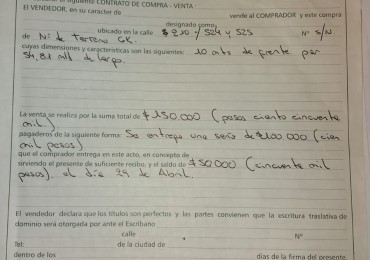 siguiente CONTRATO DE COMPRA - VENTA
El VENDEDOR, en su caracter de
vende al COMPRADOR y este compra
designado como
ubicado en la calle 524 y 525 Nº S/N
de Nº de Terreno
cuyas dimensiones y características son las siguientes: 10 mts de frente por
54,81 mts de largo.
La venta se realiza por la suma total de $150.000 (pesos ciento cincuenta
mil)
pagaderos de la siguiente forma: Se entrega una seña de $100.000 (cien
mil pesos)
que el comprador entrega en este acto, en concepto de
sirviendo el presente de suficiente recibo, y el saldo de $50000 (cincuenta mil
pesos). el día 29 de Abril.
El vendedor declara que los títulos son perfectos y las partes convienen que la escritura traslativa de
dominio será otorgada por ante el Escribano
calle Nº
Tel: de la ciudad de
dentro de los días de la firma del presente.